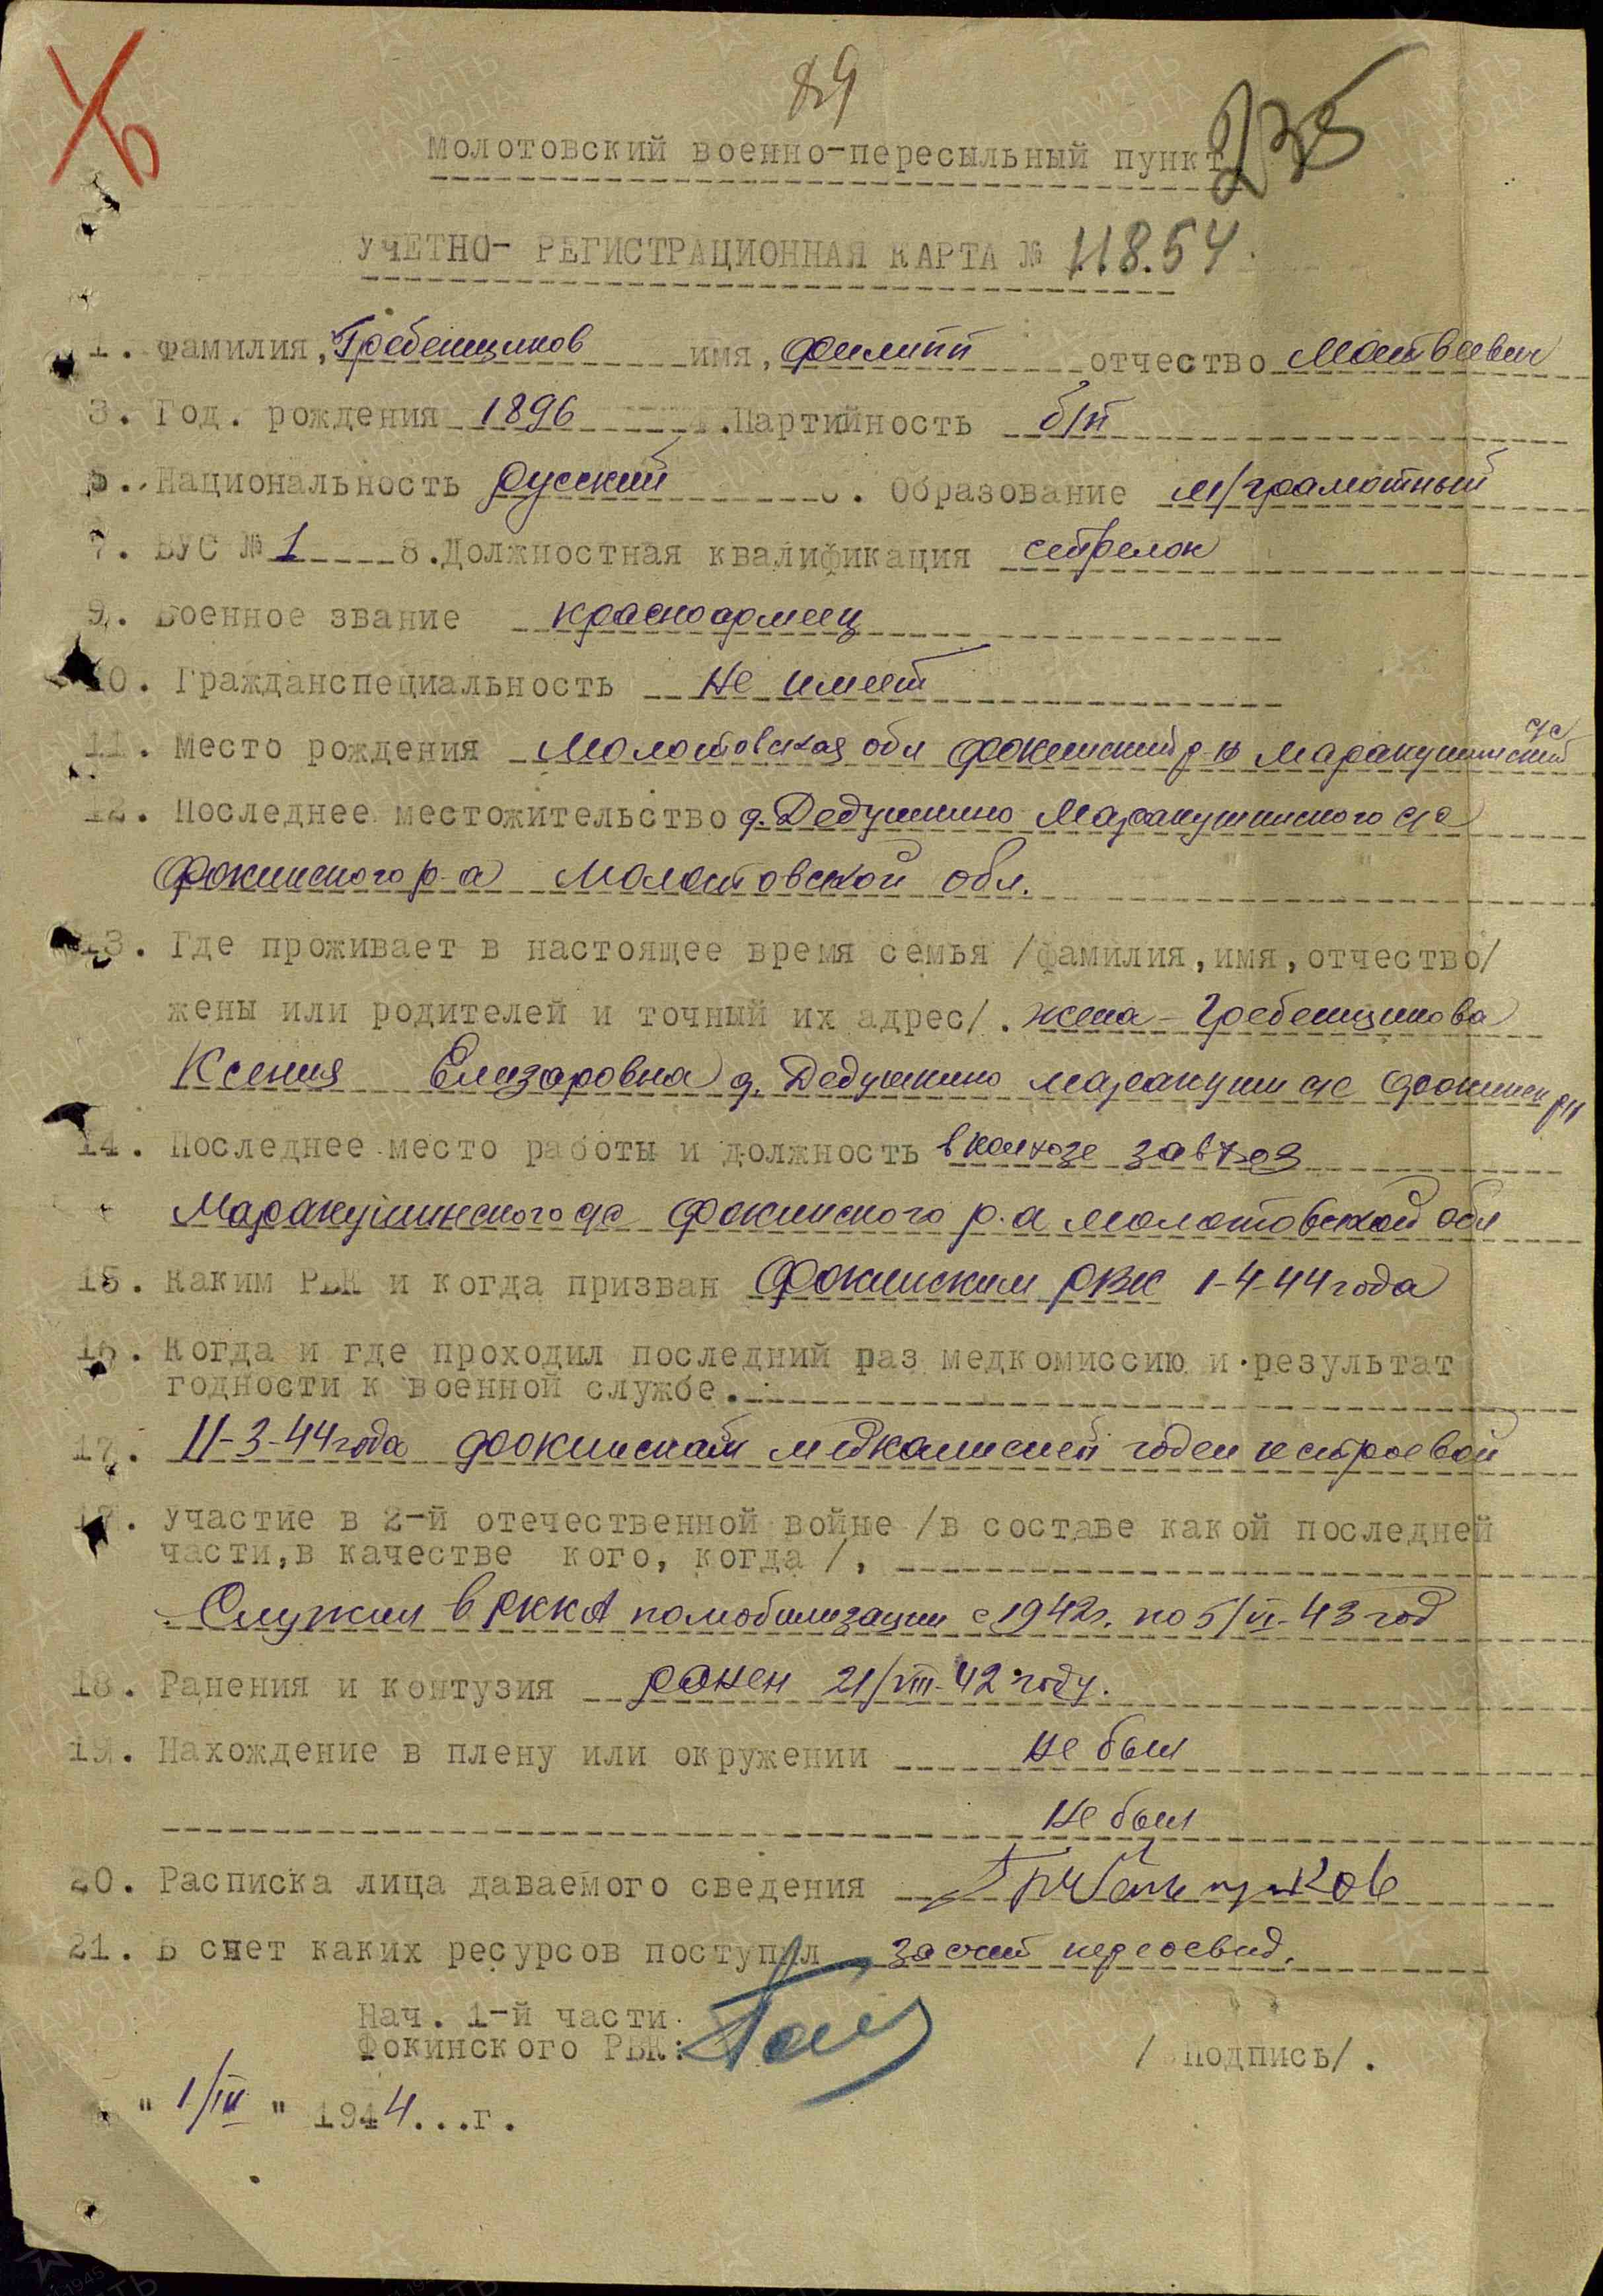 89
235
Молотовский военно-пересыльный пункт
УЧЕТНО- РЕГИСТРАЦИОННАЯ КАРТА № 118.54
1. Фамилия, Гребенщиков имя, Филипп отчество Матвеевич
3. Год. рождения 1896 4. Партийность б/п
5. Национальность русский 6. Образование м/грамотный
7. ВУС № 1 8. Должностная квалификация стрелок
9. Военное звание красноармеец
10. Гражданспециальность не имеет
11. Место рождения Молотовская обл Фокинский р-н Маракушинский с/с
12. Последнее местожительство д. Дедушкино Маракушинского с/с
Фокинского р-а Молотовской обл.
13. Где проживает в настоящее время семья /фамилия, имя, отчество/
жены или родителей и точный их адрес/. жена - Гребенщикова
Ксения Елизаровна д. Дедушкино Маракуши с/с Фокинск рн
14. Последнее место работы и должность в колхозе завхоз
Маракушинского с/с Фокинского р-а Молотовской обл
15. Каким РВК и когда призван Фокинским РВК 1-4-44 года
16. Когда и где проходил последний раз медкомиссию и результат
годности к военной службе.
17. 11-3-44 года Фокинской медкомисией годен к строевой
17. Участие в 2-й отечественной войне /в составе какой последней
части, в качестве кого, когда /,
Служил в РККА по мобилизации с 1942г. по 5/VI-43 год
18. Ранения и контузия ранен 21/VIII-42 году.
19. Нахождение в плену или окружении не был
не был
20. Расписка лица даваемого сведения
21. В счет каких ресурсов поступил за счет переосвид.
Нач. 1-й части
Фокинского РВК:
/ Подпись/.
" 1/IV " 1944...г.